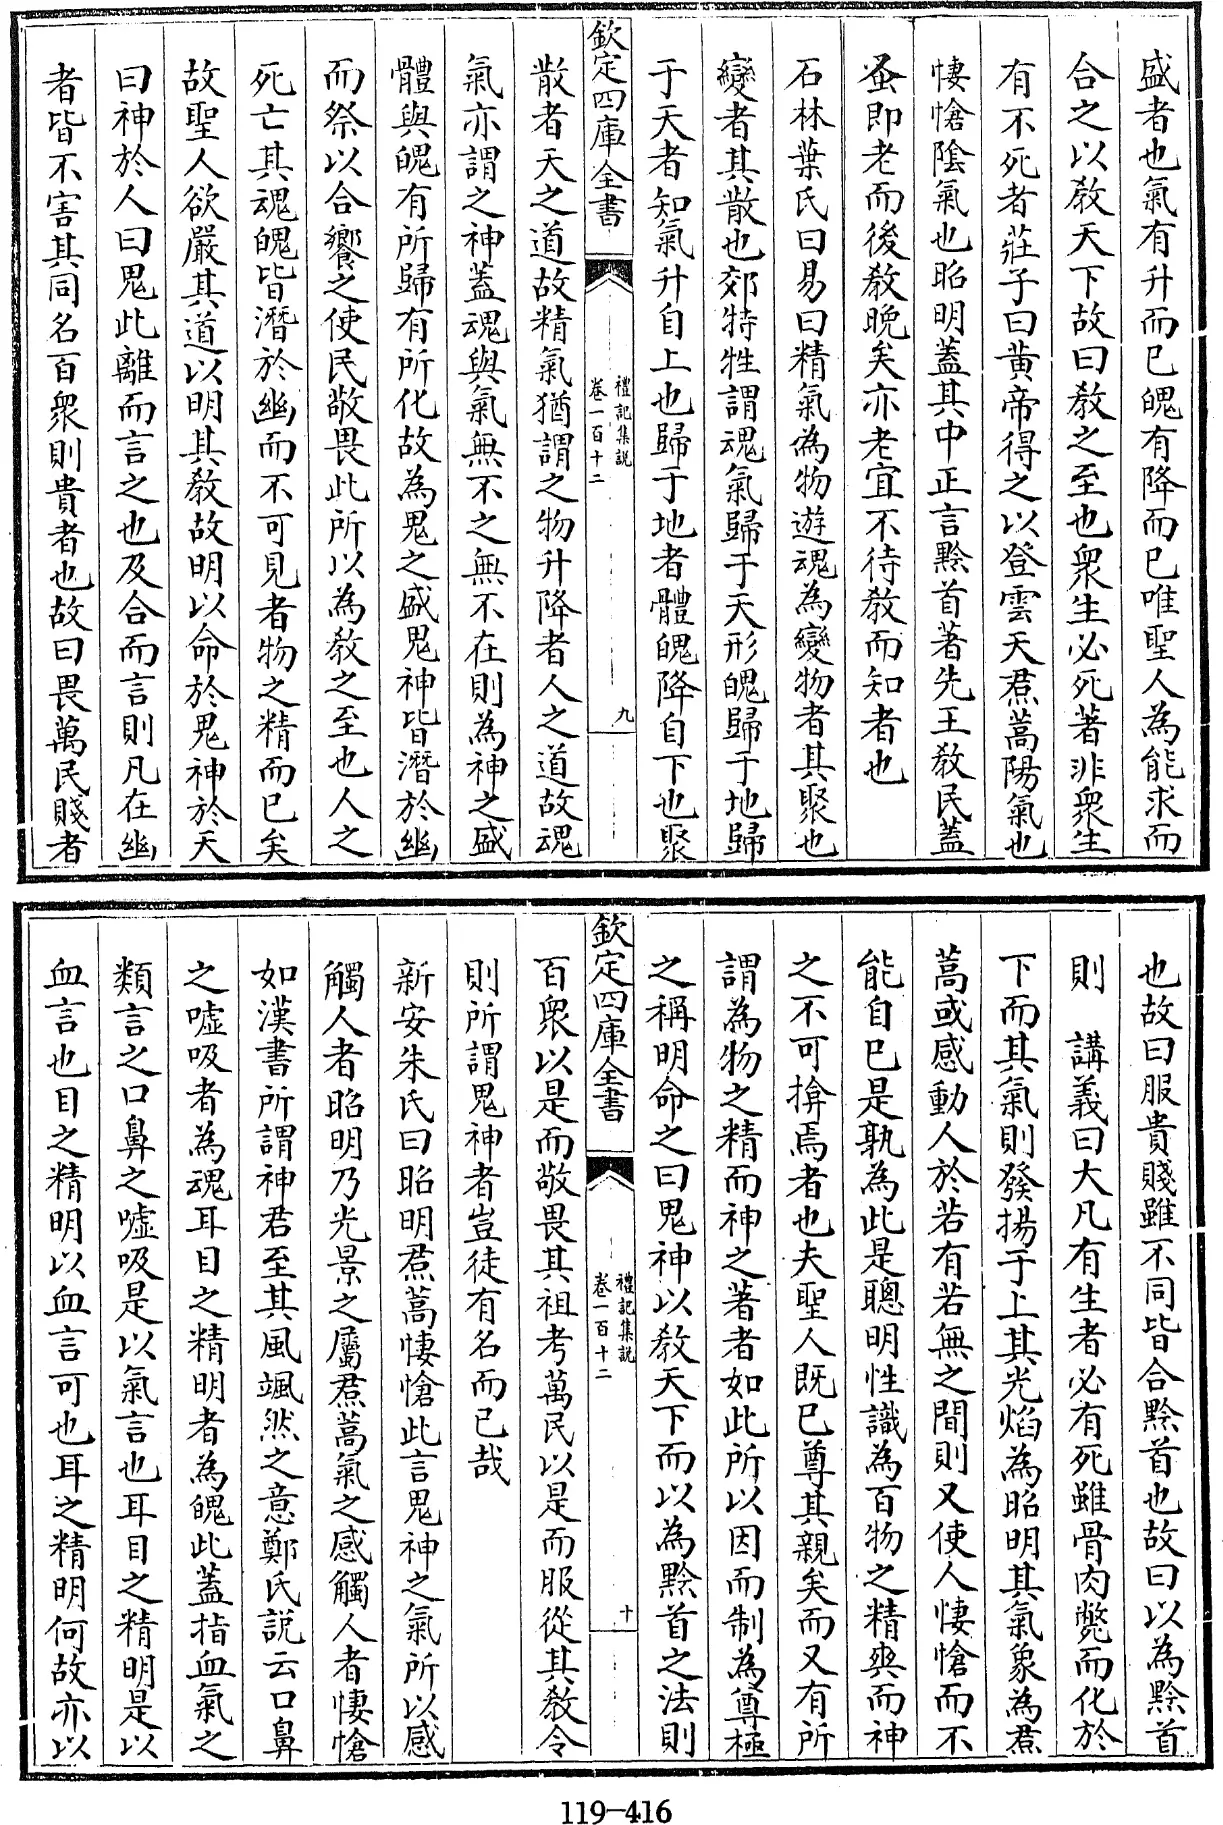 盛者也氣有升而已魄有降而已唯聖人為能求而
合之以教天下故曰教之至也衆生必死著非衆生
有不死者莊子曰黄帝得之以登雲天焄蒿陽氣也
悽愴陰氣也昭明蓋其中正言黔首著先王教民蓋
蚤即老而後教晚矣亦老宜不待教而知者也
石林葉氏曰易曰精氣為物遊魂為變物者其聚也
變者其散也郊特牲謂魂氣歸于天形魄歸于地歸
于天者知氣升自上也歸于地者體魄降自下也聚
欽定四庫全書
禮記集説
卷一百十二
九
散者天之道故精氣猶謂之物升降者人之道故魂
氣亦謂之神蓋魂與氣無不之無不在則為神之盛
體與魄有所歸有所化故為鬼之盛鬼神皆潛於幽
而祭以合饗之使民敬畏此所以為教之至也人之
死亡其魂魄皆潛於幽而不可見者物之精而已矣
故聖人欲嚴其道以明其教故明以命於鬼神於天
曰神於人曰鬼此離而言之也及合而言則凡在幽
者皆不害其同名百衆則貴者也故曰畏萬民賤者
也故曰服貴賤雖不同皆合黔首也故曰以為黔首
則　講義曰大凡有生者必有死雖骨肉斃而化於
下而其氣則發揚于上其光焰為昭明其氣象為焄
蒿或感動人於若有若無之間則又使人悽愴而不
能自已是孰為此是聰明性識為百物之精爽而神
之不可揜焉者也夫聖人既已尊其親矣而又有所
謂為物之精而神之著者如此所以因而制為尊極
之稱明命之曰鬼神以教天下而以為黔首之法則
欽定四庫全書
禮記集説
卷一百十二
十
百衆以是而敬畏其祖考萬民以是而服從其教令
則所謂鬼神者豈徒有名而已哉
新安朱氏曰昭明焄蒿悽愴此言鬼神之氣所以感
觸人者昭明乃光景之屬焄蒿氣之感觸人者悽愴
如漢書所謂神君至其風颯然之意鄭氏説云口鼻
之嘘吸者為魂耳目之精明者為魄此蓋指血氣之
類言之口鼻之嘘吸是以氣言也耳目之精明是以
血言也目之精明以血言可也耳之精明何故亦以
119-416